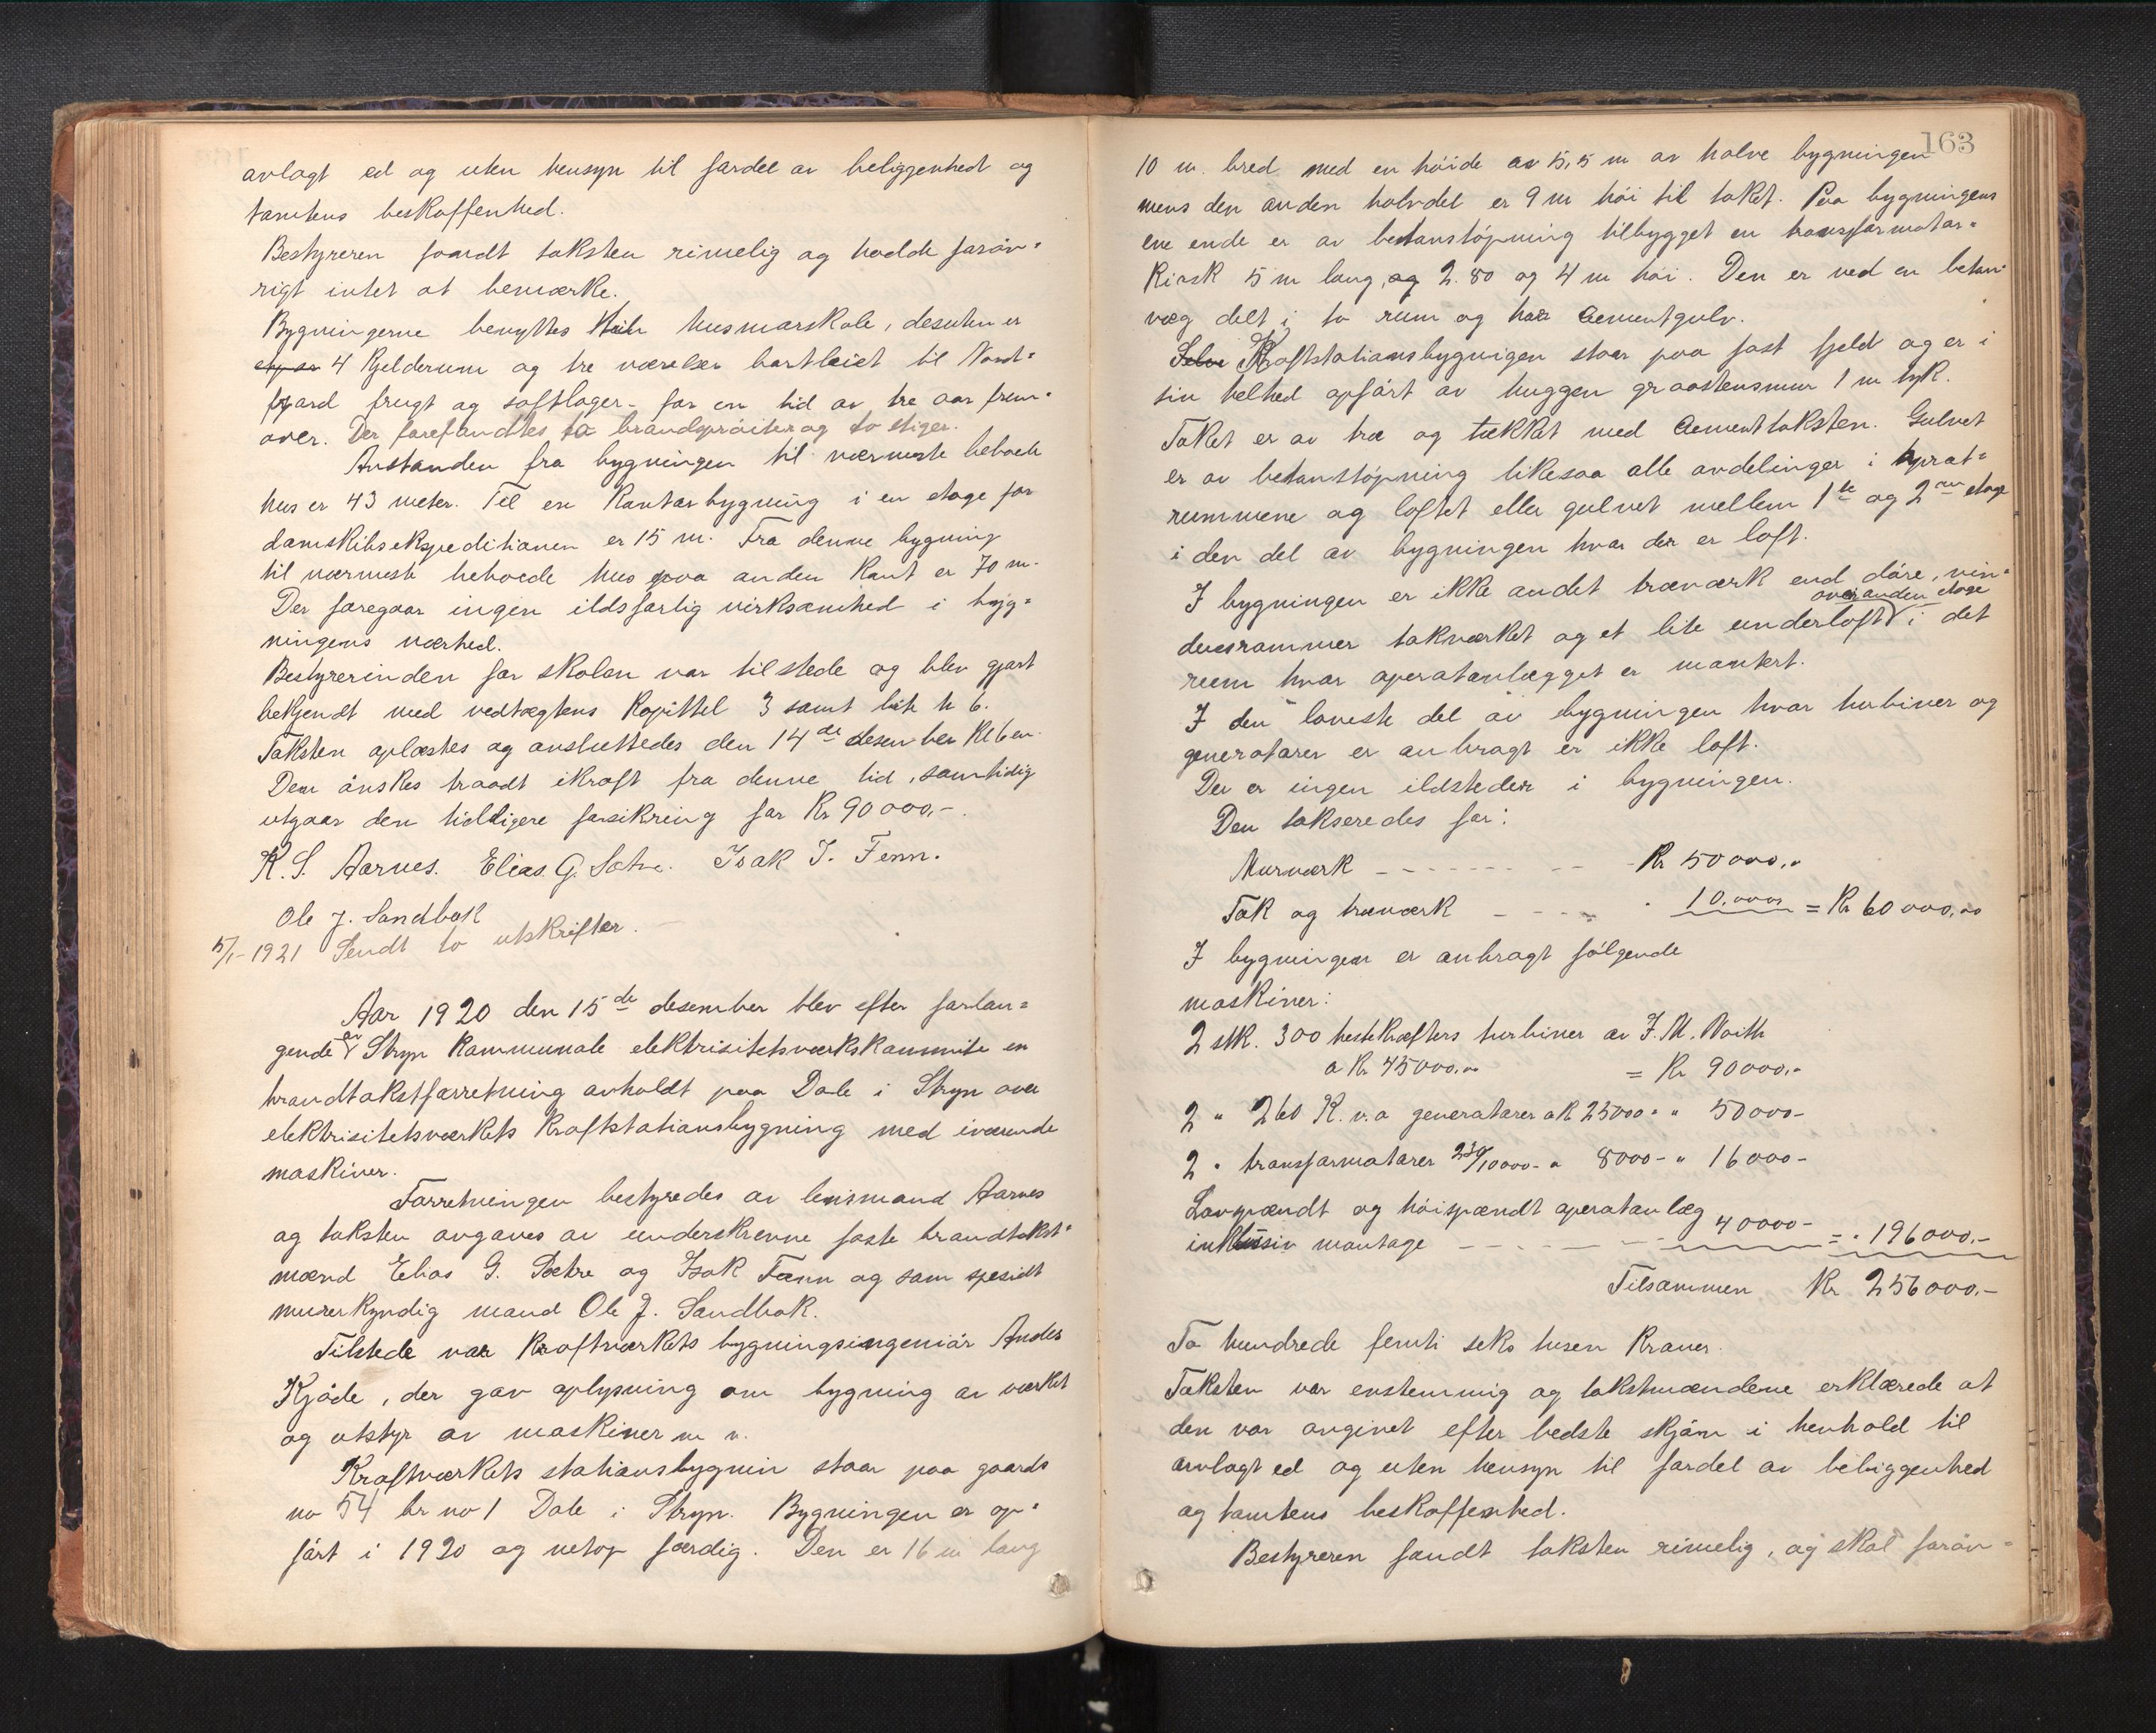 avlagt ed og uten hensyn til fordel av beliggenhedt og
tomtens beskaffenhed.
Bestyreren fandt taksten rimelig og hadde forøv=
rigt intet at bemærke.
Bygningerne benyttes til husmorskole, desuten er
4 kjelderum og tre værelser bortleiet til Nord=
fjord frugt og saftlager - for en tid av tre aar frem=
over. Der forefandtes to brandsprøiter og to stiger.
Avstanden fra bygningen til nærmeste beboede
hus er 43 meter. Til en kontorbygning i en etage for
damskibsekspeditionen er 15 m. Fra denne bygning
til nærmeste beboede hus paa anden kant er 70 m.
Der foregaar ingen ildsfarlig virksomhed i byg=
ningens nærhed.
Bestyrerinden for skolen var tilstede og blev gjort
bekjendt med vedtægtens kapittel 3 samt lit h 6.
Taksten oplæstes og avsluttedes den 14de desember kl 6 em.
Den ønskes traadt ikraft fra denne tid, samtidig
utgaar den tidligere forsikring for Kr 90000,-
K. S. Aarnes. Elias G. Sætre. Isak T. Fenn.
Ole J. Sandbak
5/1-1921 Sendt to utskrifter.
Aar 1920 den 15de desember blev efter forlan=
gende av Stryn kommunale elektrisitetsværkskommite en
brandtakstforretning avholdt paa Dale i Stryn over
elektrisitetsværkets kraftstationsbygning med iværende
maskiner.
Forretningen bestyredes av lensmand Aarnes
og taksten avgaves av underskrevne faste brandtakst=
mænd Elias G. Sætre og Isak Fænn og som spesielt
murerkyndig mand Ole J. Sandbak.
Tilstede var Kraftværkets bygningsingeniør Anders
Kjøde, der gav oplysning om bygning av værket
og utstyr av maskiner m v.
Kraftværkets stationsbygnin staar paa gaards
no 54 br no 1 Dale i Stryn. Bygningen er op=
ført i 1920 og netop færdig. Den er 16 m lang
163
10 m. bred med en høide av 5,5 m av halve bygningen
mens den anden halvdel er 9 m høi til taket. Paa bygningens
ene ende er av betonstøpning tilbygget en transformator=
kiosk 5 m lang, og 2.80 og 4 m høi. Den er ved en beton=
væg delt i to rum og har Cementgulv.
Selve Kraftstationsbygnigen staar paa fast fjeld og er i
sin helhed opført av huggen graastensmur 1 m tyk.
Taket er av træ og tækket med Cementtaksten. Gulvet
er av betonstøpning likesaa alle avdelinger i aprat=
rummene og loftet eller gulvet mellem 1ste og 2nen etage
i den del av bygningen hvor der er loft.
I bygningen er ikke andet træværk end døre, vin=
duesrammer takværket og et lite underloft over anden etage i det
rum hvor aperatanlægget er montert.
I den laveste del av bygningen hvor turbiner og
generatorer er anbragt er ikke loft.
Der er ingen ildsteder i bygningen.
Den takseredes for:
Murværk - - - - Kr 50000,-
Tak og træværk - - - " 10,000 = Kr 60000,00
I bygningen er anbragt følgende
maskiner:
2 stk. 300 hestekræfters turbiner av J. M. Voith
a Kr 45000,- = Kr 90000,-
2 " 260 K.v.a generatorer a K 25000 - " 50000-
2 " transformatorer 230/10000 - a 8000 - " 16000-
Lavspændt og høispændt aperatanlæg
inklusiv montage - - - 40000- = " 196000,-
Tilsammen Kr 256000,-
To hundrede femti seks tusen Kroner.
Taksten var enstemmig og takstmændene erklærede at
den var avgivet efter bedste skjøn i henhold til
avlagt ed og uten hensyn til fordel av beliggenhed
og tomtens beskaffenhed.
Bestyreren fandt taksten rimelig, og skal forøv=